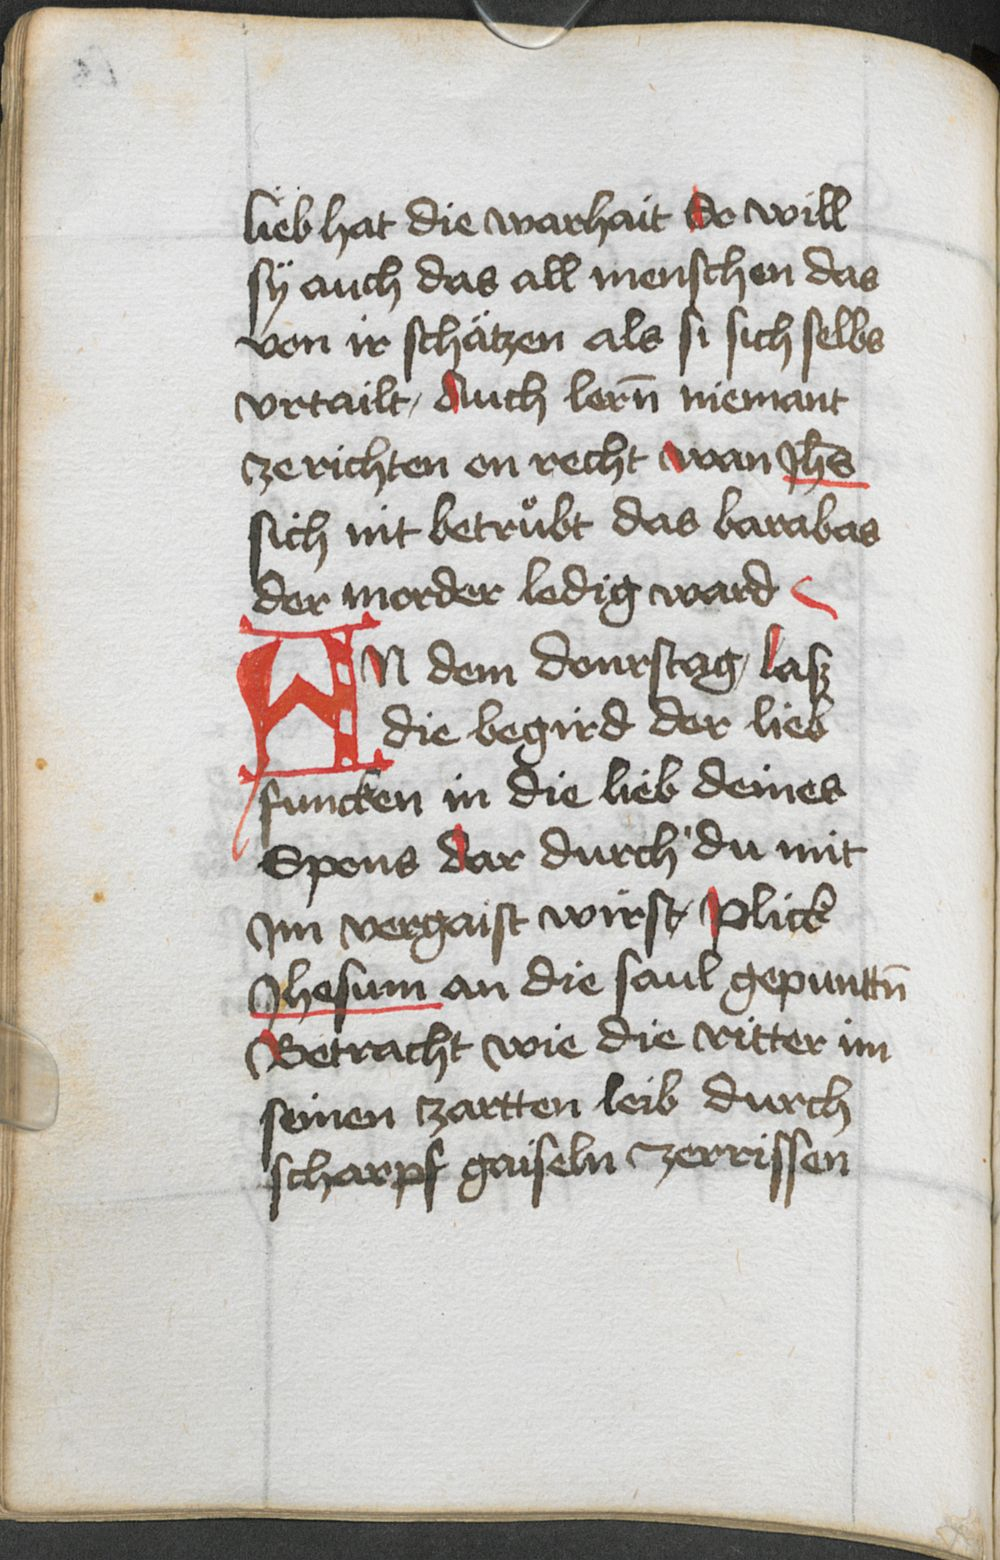 lieb hat die warhait do will
sÿ auch das all menschen das
von ir schätzen als si sich selbs
vrtailt / Auch lern̄ niemant
ze richten on recht wan Jhs̄
sich nit betrůbt das barabas
der morder ledig ward
AN dem donrstag / lasz
die begird der lieb
funcken in die lieb deines
Spons dar durch du mit
Im vergaist wirst / Plick
Jhesum an die saul gepunttn̄
Betracht wie die ritter im
seinen zartten leib durch
scharpf gaiseln zerrissen